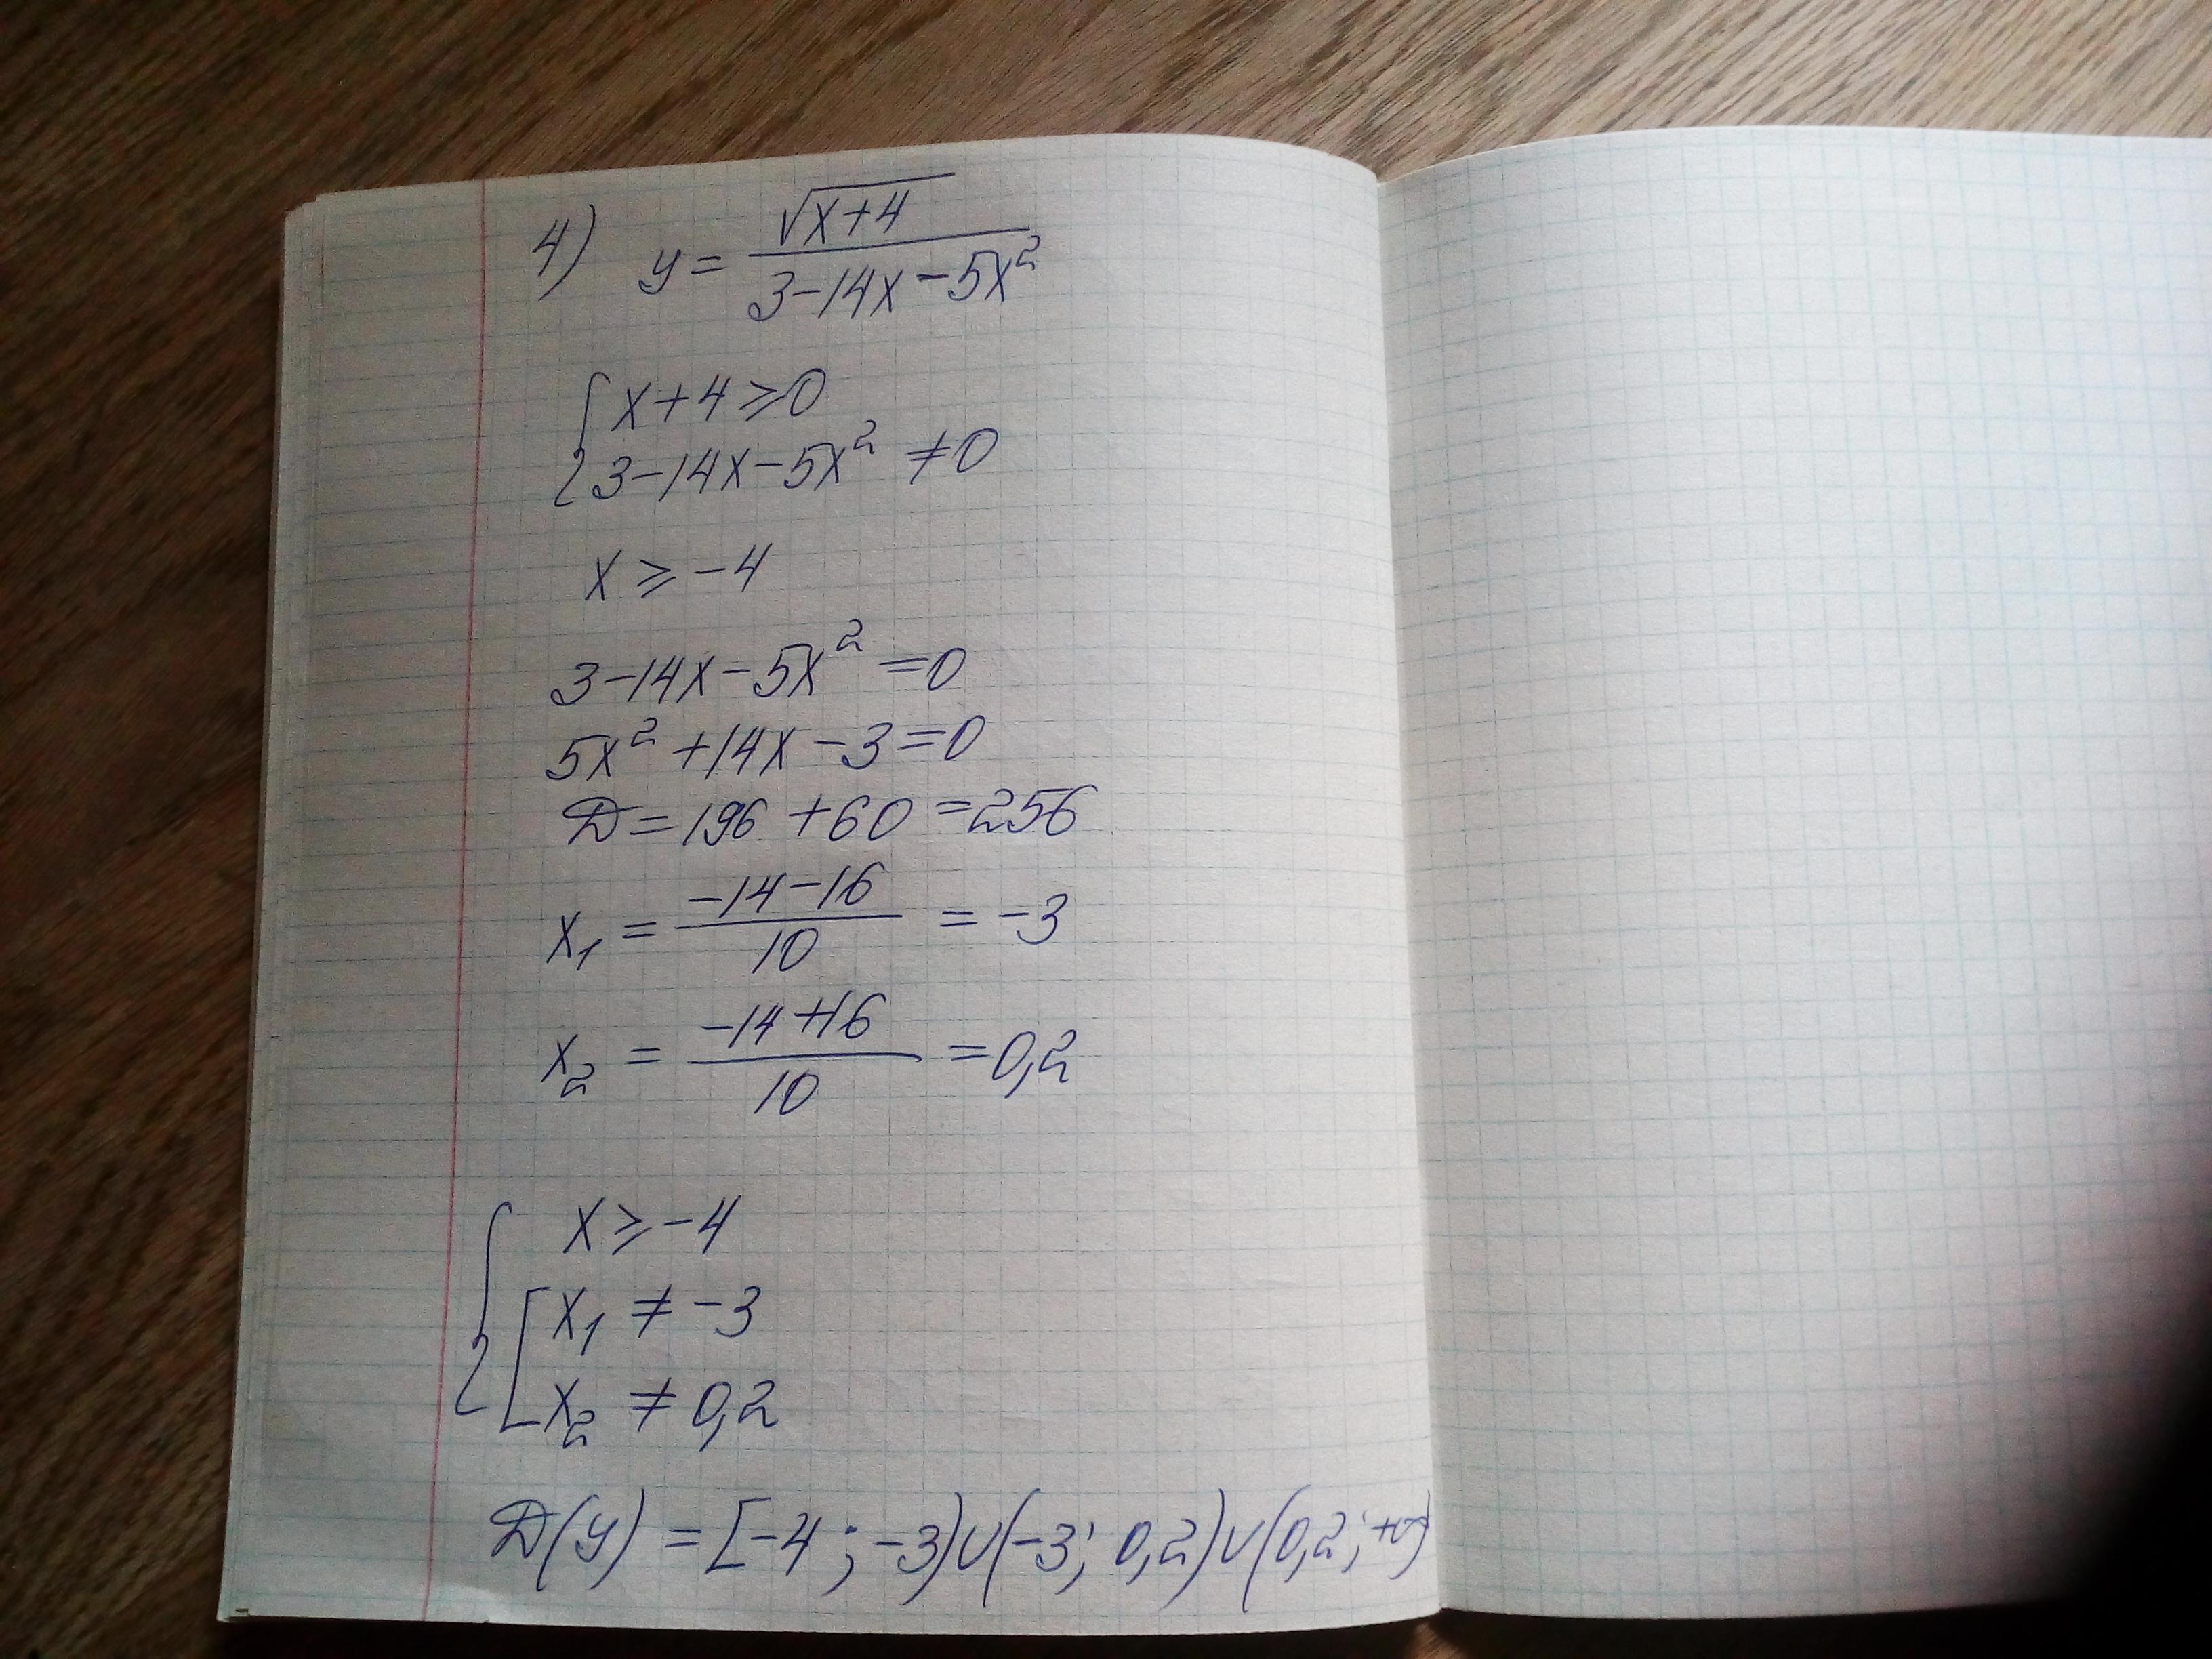 4) y = √(x+4) / (3-14x-5x²)
{ x+4 ≥ 0
{ 3-14x-5x² ≠ 0
x ≥ -4
3-14x-5x² = 0
5x² + 14x - 3 = 0
D = 196 + 60 = 256
x₁ = (-14-16) / 10 = -3
x₂ = (-14+16) / 10 = 0,2
{ x ≥ -4
[ x₁ ≠ -3
[ x₂ ≠ 0,2
D(y) = [-4; -3)∪(-3; 0,2)∪(0,2; +∞)